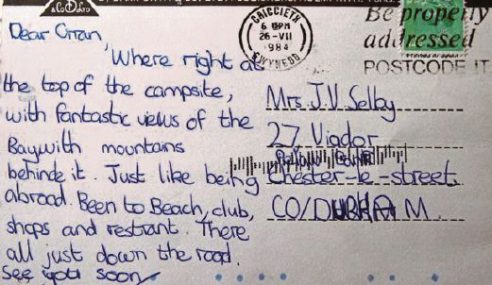 Dear Gran,
Where right at
the top of the campsite,
with fantastic views of the
Bay with mountains
behinde it. Just like being
abroad. Been to Beach, club,
shops and restrant. There
all just down the road.
See you soon
CRICCIETH
6 PM
26-VII
1984
GWYNEDD
Be properly
addressed
POSTCODE IT
Mrs J.V. Selby
27 Viador
Chester-le-street.
CO/DURHAM.